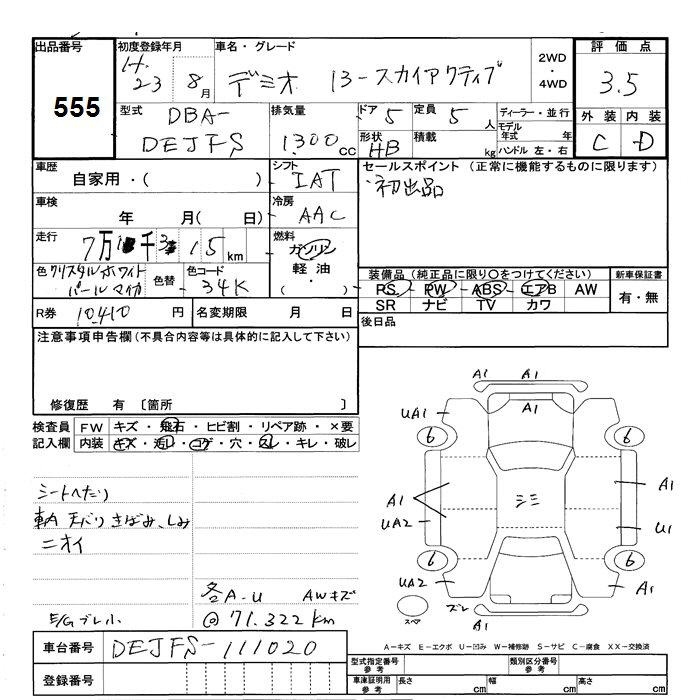 出品番号 初度登録年月 車名・グレード 2WD 評価点
555 H.23 8月 デミオ 13-スカイアクティブ ・4WD 3.5
型式 排気量 ドア 5 定員 5 人 ディーラー・並行 外装 内装
DBA- 1300 cc 形状 HB 積載 kg モデル年式 年 C D
DEJFS ハンドル 左・右
車歴 シフト セールスポイント (正常に機能するものに限ります)
自家用・( ) IAT 初出品
車検 冷房
年 月( 日) AAC
走行 燃料
7万 千3 15 km ガソリン
色 クリスタルホワイトパールマイカ 色替 色コード 34K 軽油 ・( )
装備品 (純正品に限り○をつけてください) 新車保証書
PS PW ABS エアB AW 有・無
SR ナビ TV カワ
R券 10410 円 名変期限 月 日
後日品
注意事項申告欄 (不具合内容等は具体的に記入して下さい)
修復歴 有 〔箇所 〕
検査員 FW キズ・飛石・ヒビ割・リペア跡・×要
記入欄 内装 キズ・汚レ・コゲ・穴・スレ・キレ・破レ
シートへたり
天バリ きばみ、しみ
ニオイ
各A-U AWキズ
E/Gブレ小 @71.322km
A1 A1
UA1 A1
6 6
A1 A1
UA2 U1
6 6
UA2 A1
ズレ
スペア A1
車台番号 DEJFS-111020
A-キズ E-エクボ U-凹み W-補修跡 S-サビ C-腐食 XX-交換済
登録番号
型式指定番号 参考 類別区分番号 参考
車庫証明用 参考 長さ cm 幅 cm 高さ cm